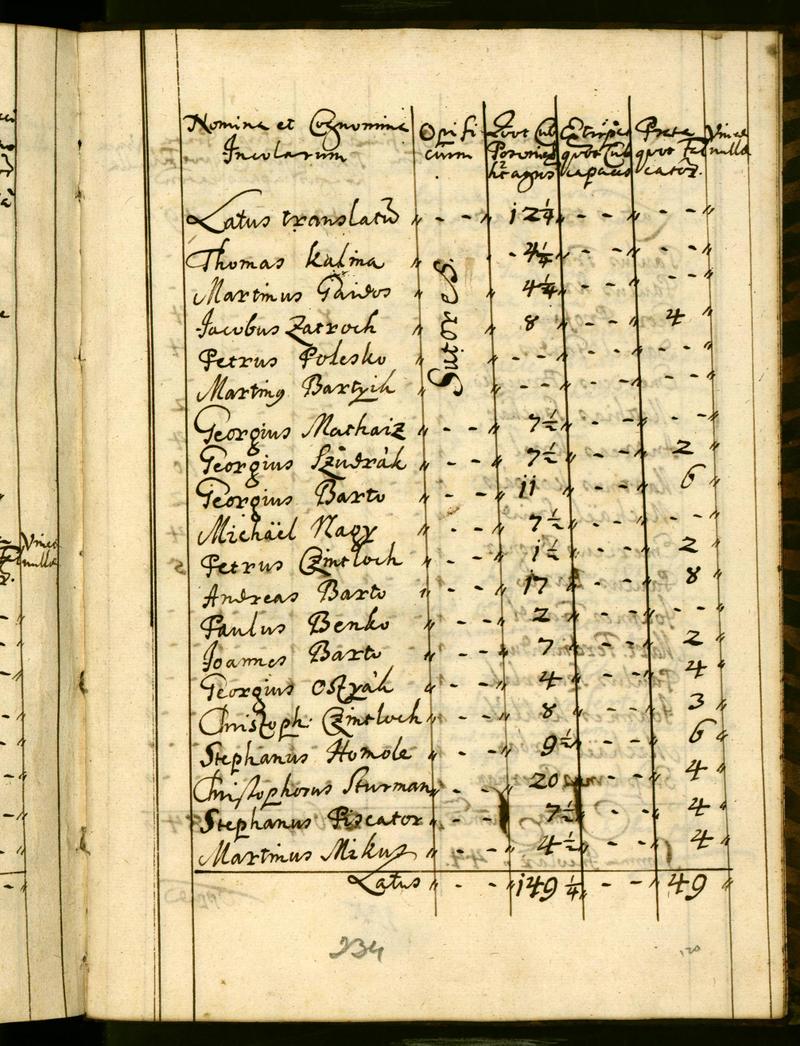 Nomina et Cognomina Incolarum Opificum Quot Cub Posonien hꝫ agros Extirpes quot Cub capaces Prata quot Falcatorꝫ Vinea nulla
Latus translatū " - - " 12¼ " - - " - - "
Thomas Kalina " Sutores. - 4¼ " - - " - - "
Martinus Gaidos " " 4¼ " - - " - - "
Jacobus Zatroch " " 8 " - - " 4 "
Petrus Polesko " " - - " - - " - - "
Martinꝰ Bartyik " " - - " - - " - - "
Georgius Machaiz " - - " 7½ " - - " - - "
Georgius Szudrák " - - " 7½ " - - " 2 "
Georgius Barto " - - " 11 " - - " 6 "
Michäel Nagy " - - " 7½ " - - " - - "
Petrus Czintloch " - - " 1½ " - - " 2 "
Andreas Barto " - - " 17 " - - " 8 "
Paulus Benko " - - " 2 " - - " - - "
Joannes Barto " - - " 7 " - - " 2 "
Georgius Osztyák " - - " 4 " - - " 4 "
Christoph: Czintloch " - - " 8 " - - " 3 "
Stephanus Homole " - - " 9½ " - - " 6 "
Christophorus Sturman " - - " 20 " - - " 4 "
Stephanus Piscator " - - " 7½ " - - " 4 "
Martinus Mikus " - - " 4½ " - - " 4 "
Latus " - - " 149¼ " - - " 49 "
234